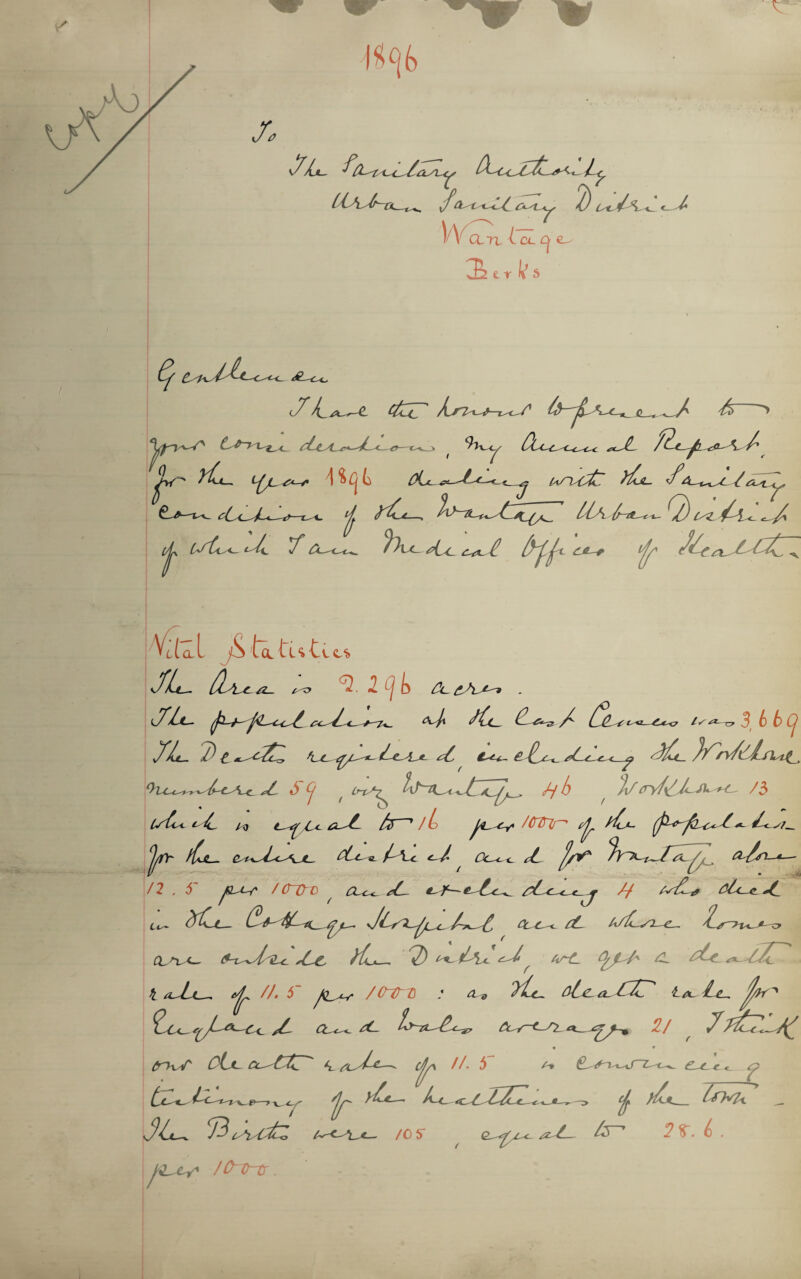 1896
Copy
To
The Sanitary Authority
Urban Sanitary District
Wantage
Berks
Gentlemen
I have the honour to present to
your consideration, My Annual Report
for the year 1896 dealing with the Sanitary
condition of the Wantage Urban District
of which I am Medical Officer of Health
Vital Statistics
The Area is 2.296 acres.
The population at the Last Census was 3,669
The Deaths registered, including the Workhouse,
numbered 59, viz Wantage 46, Workhouse 13
which is equal to 16 per 1000 of the population
for the entire district, and for Wantage alone
12.5 per 1000, and excluding 4 who died
in the Cottage Hospital, and whose homes
are outside the District, we get a death
rate of 11.5 per 1000: as the death rate for
England and Wales averages 21, I think
our death rate of 11.5 is convincing
testimony of the healthiness of the town
The Births were 105, equal to 28.6.
per 1000.